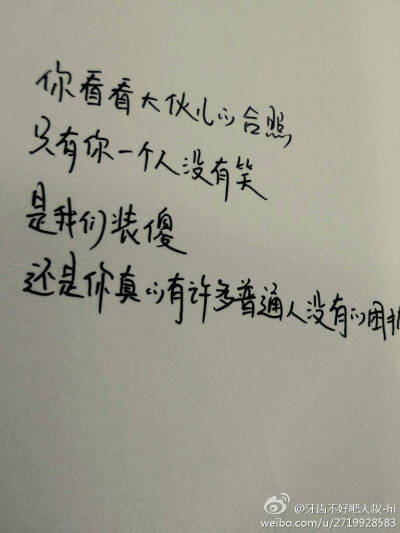 你看看大伙儿的合照
只有你一个人没有笑
是我们装傻
还是你真的有许多普通人没有的困扰
@牙齿不好吧大叔-hi
weibo.com/u/2719928583